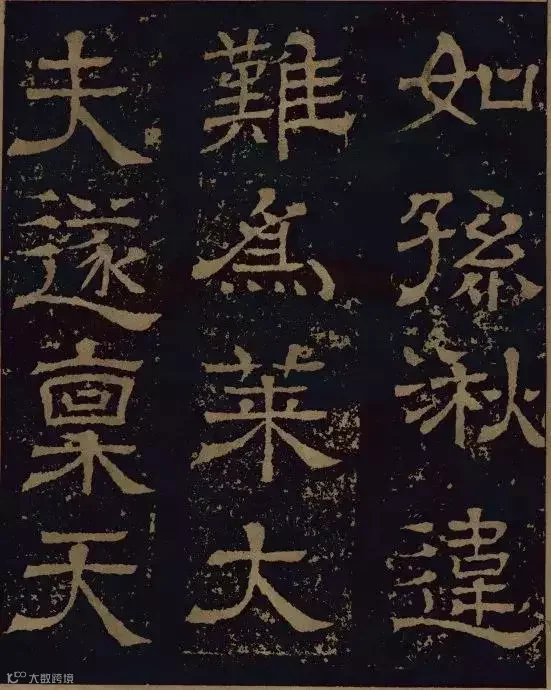 如孫湫違
難為萊大
夫遂稟天
大数跨境